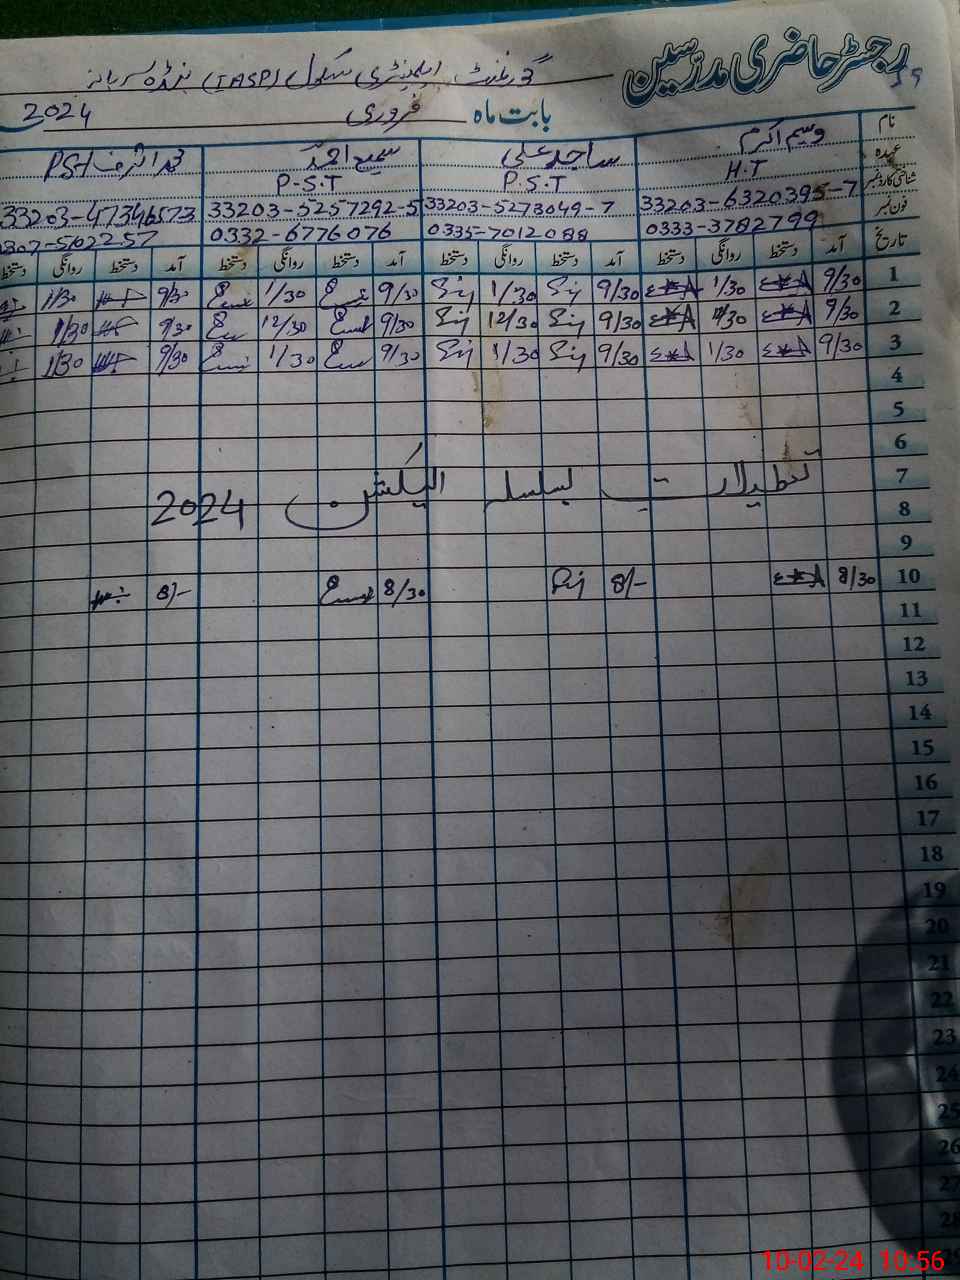 رجسٹر حاضری مدرسین
گورنمنٹ ایلیمنٹری سکول (IASP)
بابت ماہ فروری 2024
نام وسیم اکرم ساجد علی سمیع احمد محمد اشرف
عہدہ H.T P.S.T P-S.T PST
شناختی کارڈ نمبر 33203-6320395-7 33203-5273049-7 33203-5257292-5 33203-47346573
فون نمبر 0333-3782799 0335-7012088 0332-6776076 0307-562257
تاریخ آمد دستخط روانگی دستخط آمد دستخط روانگی دستخط آمد دستخط روانگی دستخط آمد دستخط روانگی دستخط
1 9/30 1/30 9/30 1/30 9/30 1/30 9/30 1/30
2 9/30 9/30 12/30 9/30 12/30 9/30 1/30
3 9/30 1/30 9/30 1/30 9/30 1/30 9/30 1/30
4
5
6
7 تعطیلات بسلسلہ الیکشن 2024
8
9
10 8/30 8/- 8/30 8/-
11
12
13
14
15
16
17
18
19
20
21
22
23
24
25
26
27
28
29
10-02-24 10:56